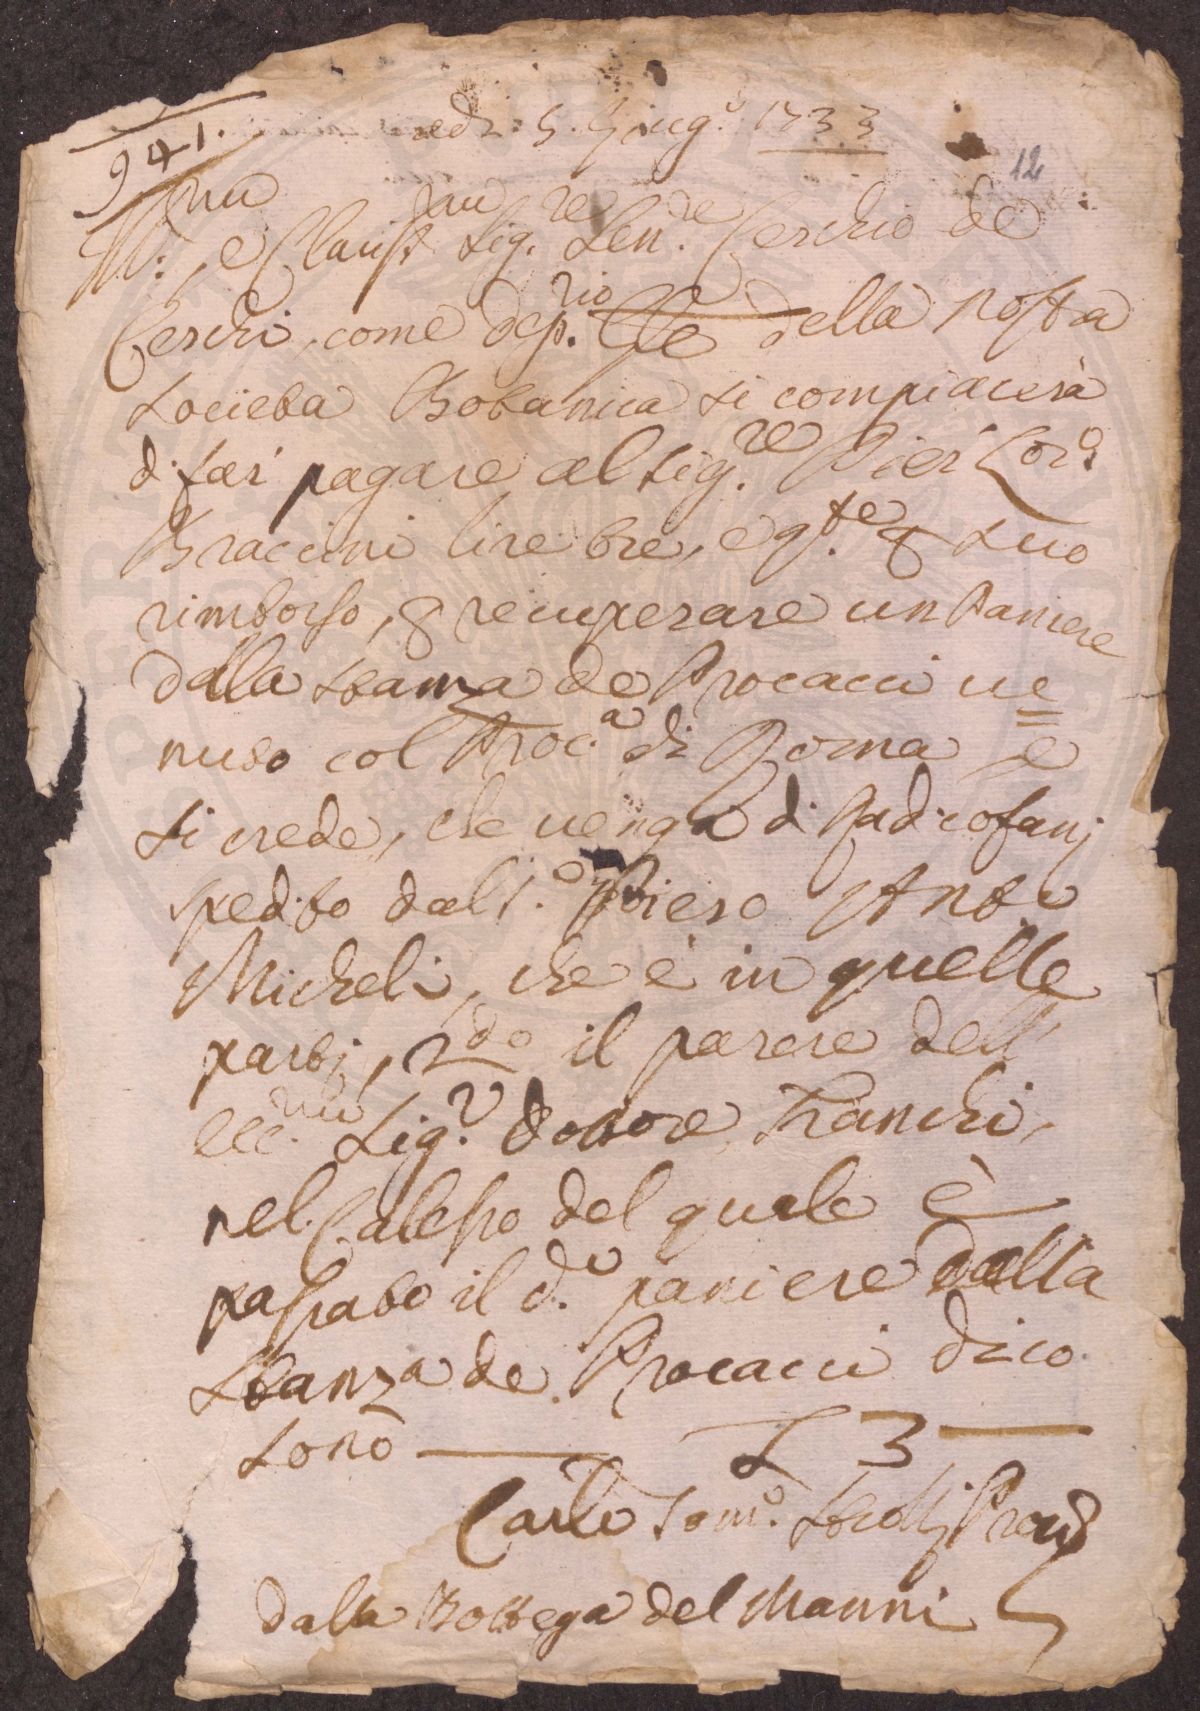 941.
Adi 5. Giug.o 1733
12
Ill.mo, e Clariss.mo Sig.re Sen.re Cerchio de
Cerchi, come dep.rio Gle della nostra
Società Botanica si compiacerà
di far pagare al Sig.re Pier Lor.o
Braccini lire tre, e q.te p suo
rimborso, p recuperare un Paniere
dalla stanza de Procacci ve
nuto col Proc.a di Roma e
si crede, che venga di Radicofanj
spedito dal S.e Piero Anto
Micheli, che è in quelle
partj, 2do il parere dell'
ecc.mo Sig.r Dottore Franchi,
nel Calesso del quale è
passato il d.o paniere dalla
stanza de Procacci dico
sono L 3
Carlo Tom.o
dalla Bottega del Manni